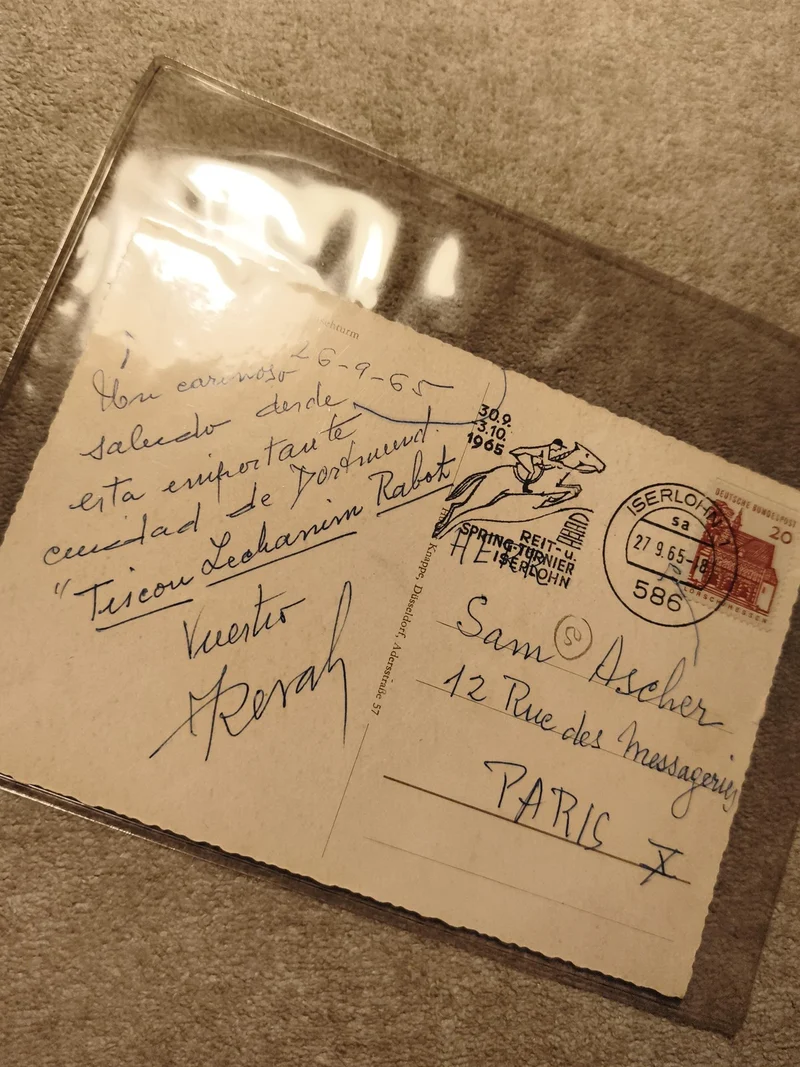 26-9-65
Un cariñoso
saludo desde
esta importante
ciudad de Dortmund.
"Tiscou Lechanim Rabot
Vuestro
Knappe, Düsseldorf, Adersstraße 57
30.9.
-3.10.
1965
REIT- u.
SPRING-TURNIER
ISERLOHN
ISERLOHN
sa
27.9.65-18
586
DEUTSCHE BUNDESPOST
20
Sam Ascher
12 Rue des Messageries
PARIS X